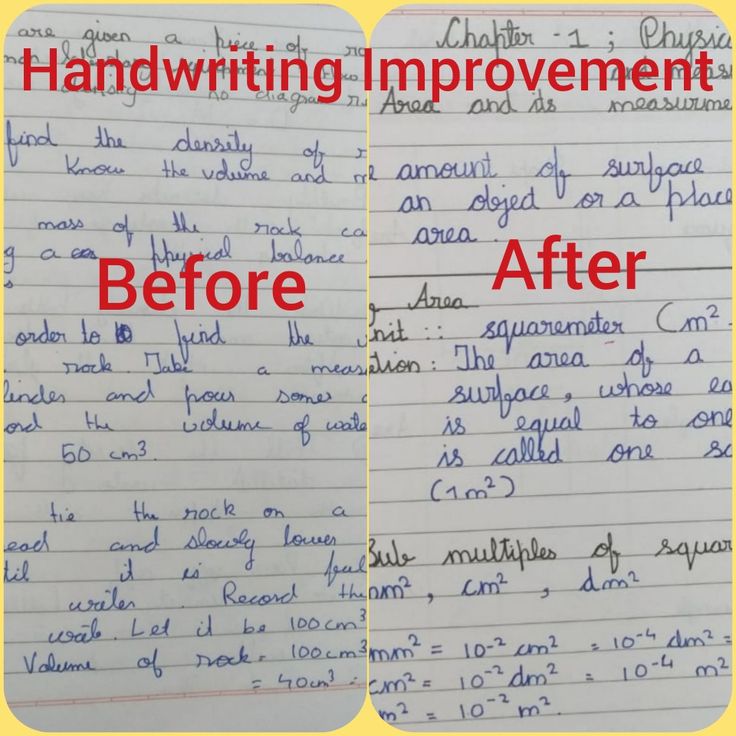 Handwriting Improvement
Before
are given a piece of
no diagram
find the density of
Know the volume and
mass of the rock ca
g a physical balance
order to find the
rock. Take a meas
linder and pour some
ord the volume of wate
50 cm³.
tie the rock on a
ead and slowly lower
til it is ful
water. Record the
wat. Let it be 100cm³
Volume of rock = 100cm³
= 40cm³
After
Chapter - 1 ; Physica
and meas
Area and its measurme
amount of surface
an objed or a place
area.
Area
nit :: squaremeter (m²
tion : The area of a
surface, whose ea
is equal to one
is called one sq
(1m²)
Sub multiples of squar
mm², cm², dm²
mm² = 10⁻² cm² = 10⁻⁴ dm² =
cm² = 10⁻² dm² = 10⁻⁴ m²
m² = 10⁻² m².